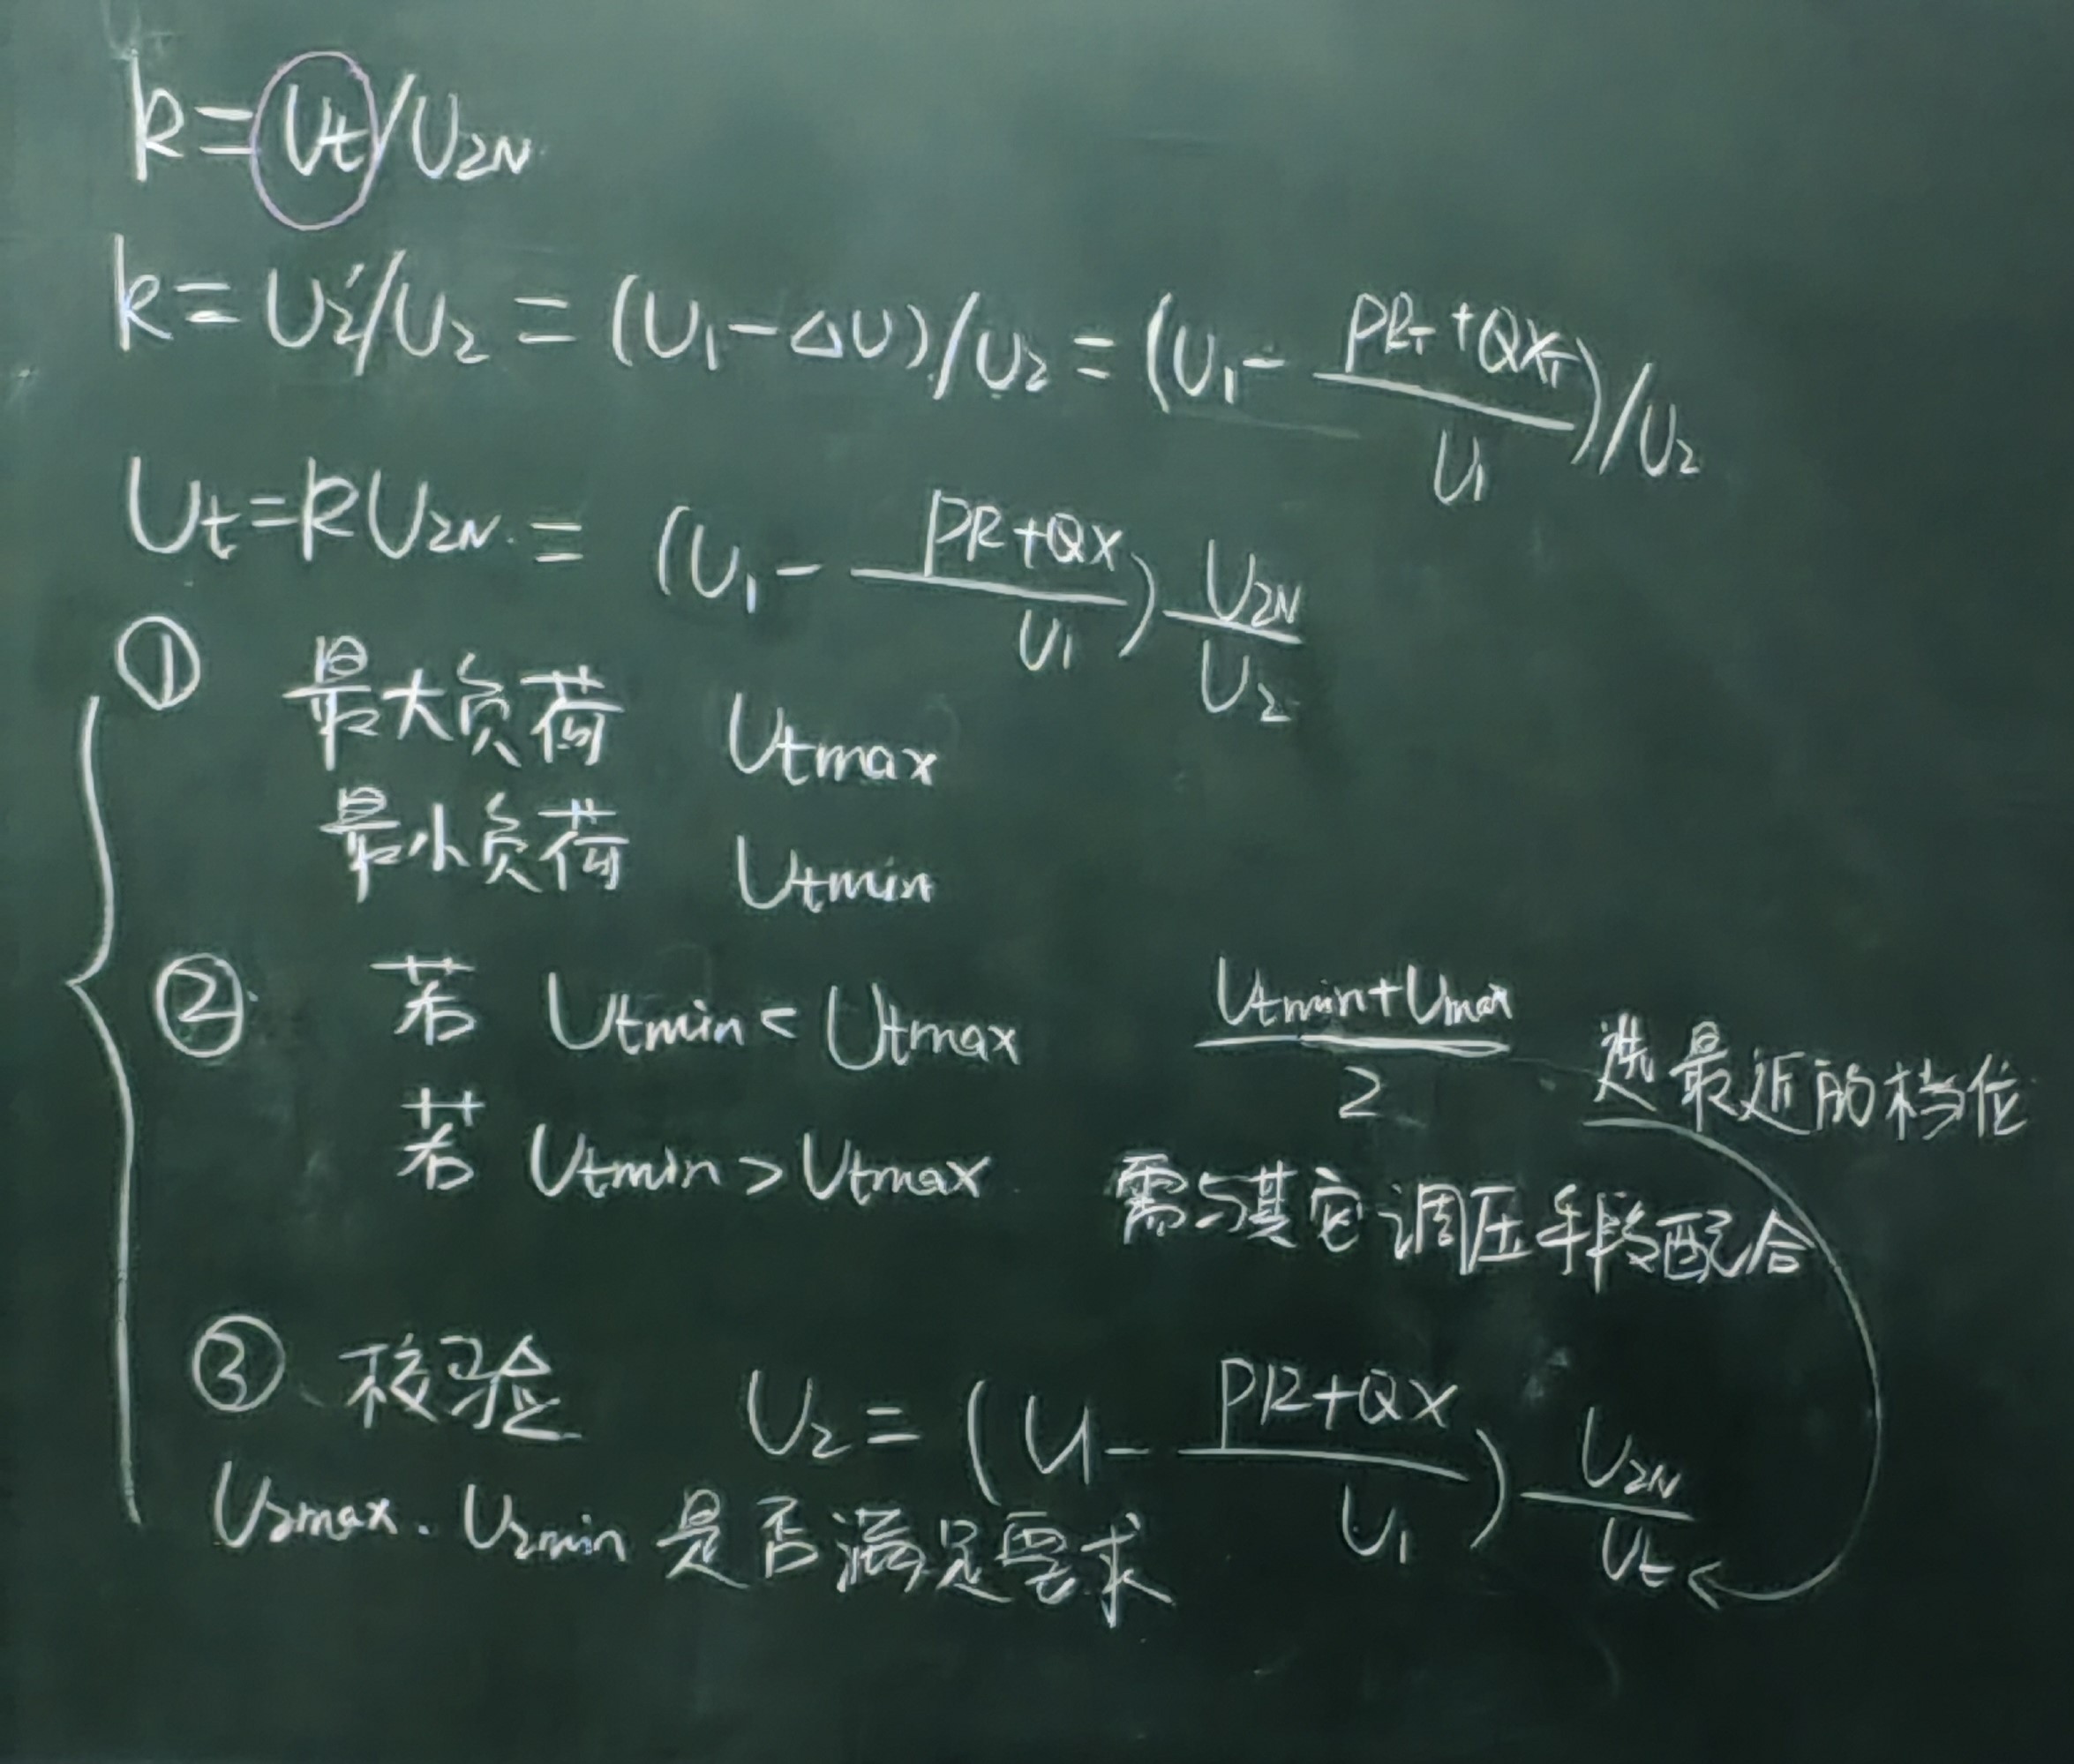 k=Ut/U2N
k=U2'/U2=(U1-△U)/U2=(U1-(PRT+QXT)/U1)/U2
Ut=kU2N=(U1-(PR+QX)/U1)U2N/U2
① 最大负荷 Utmax
最小负荷 Utmin
② 若 Utmin<Utmax (Utmin+Umax)/2 选最近的档位
若 Utmin>Utmax 需与其它调压手段配合
③ 校验 U2=(U1-(PR+QX)/U1)U2N/Ut
U2max、U2min 是否满足要求